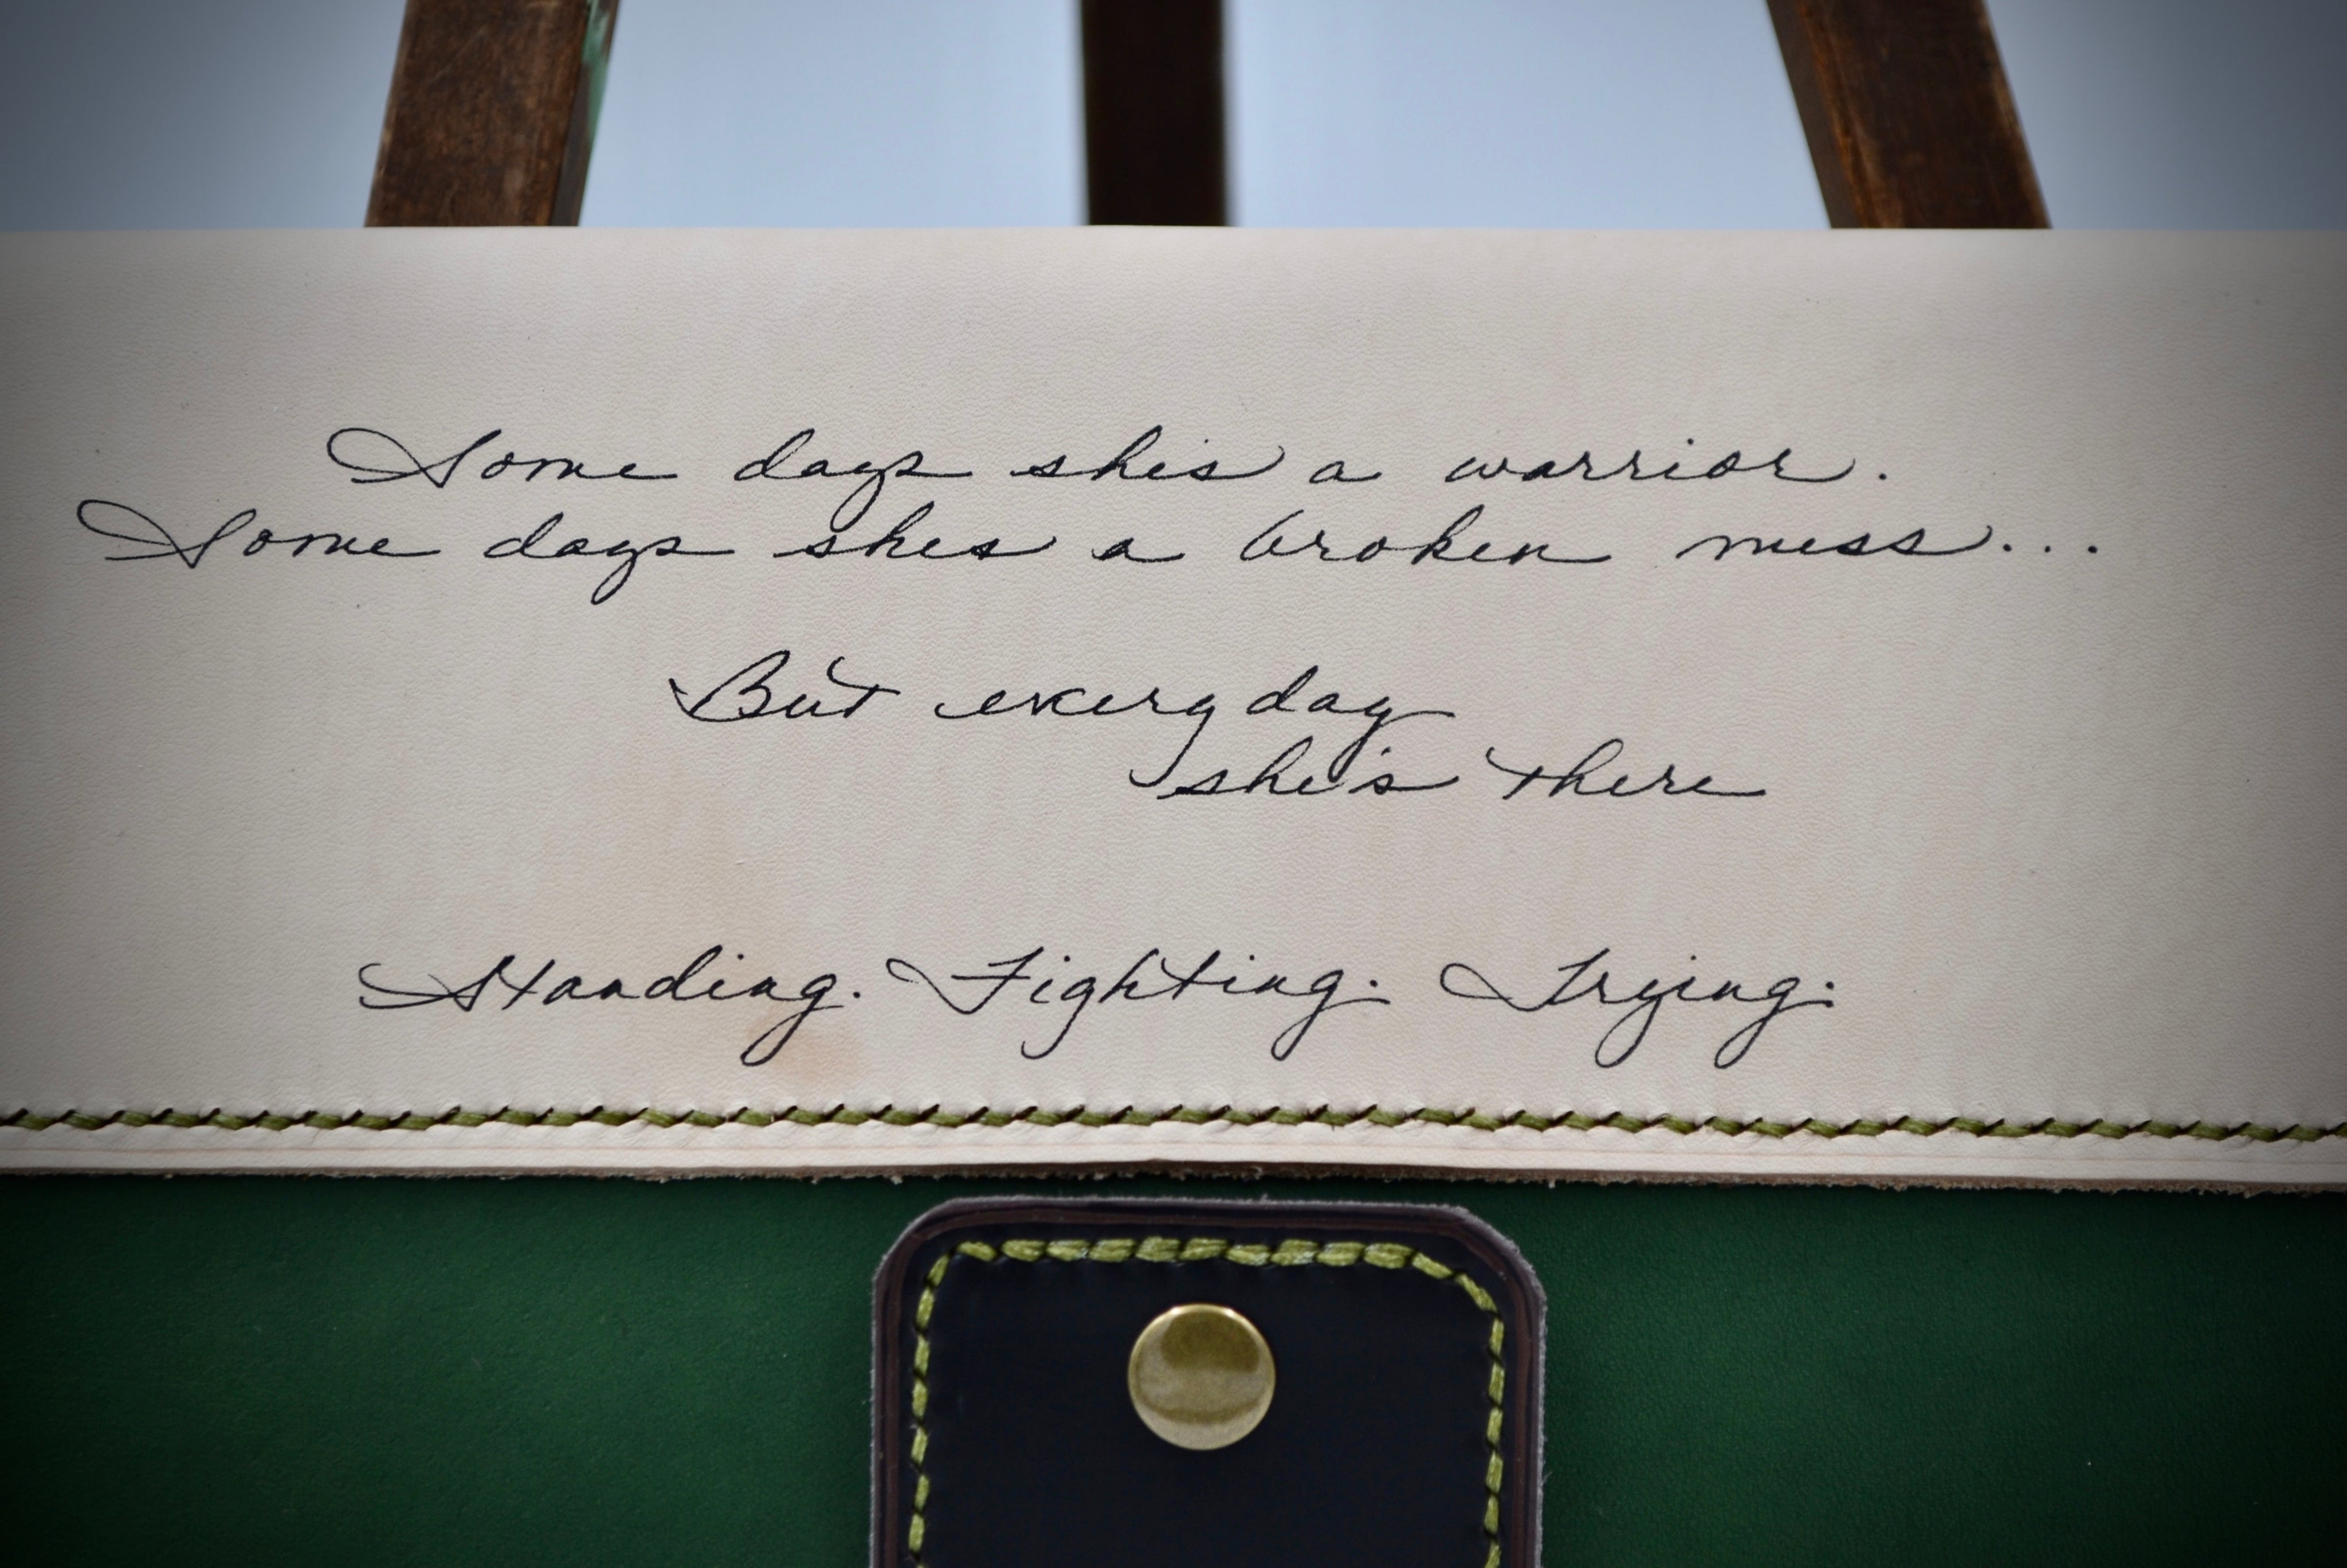 Some days shes a warrior.
Some days shes a broken mess...
But everyday
she's there
Standing. Fighting. Trying.